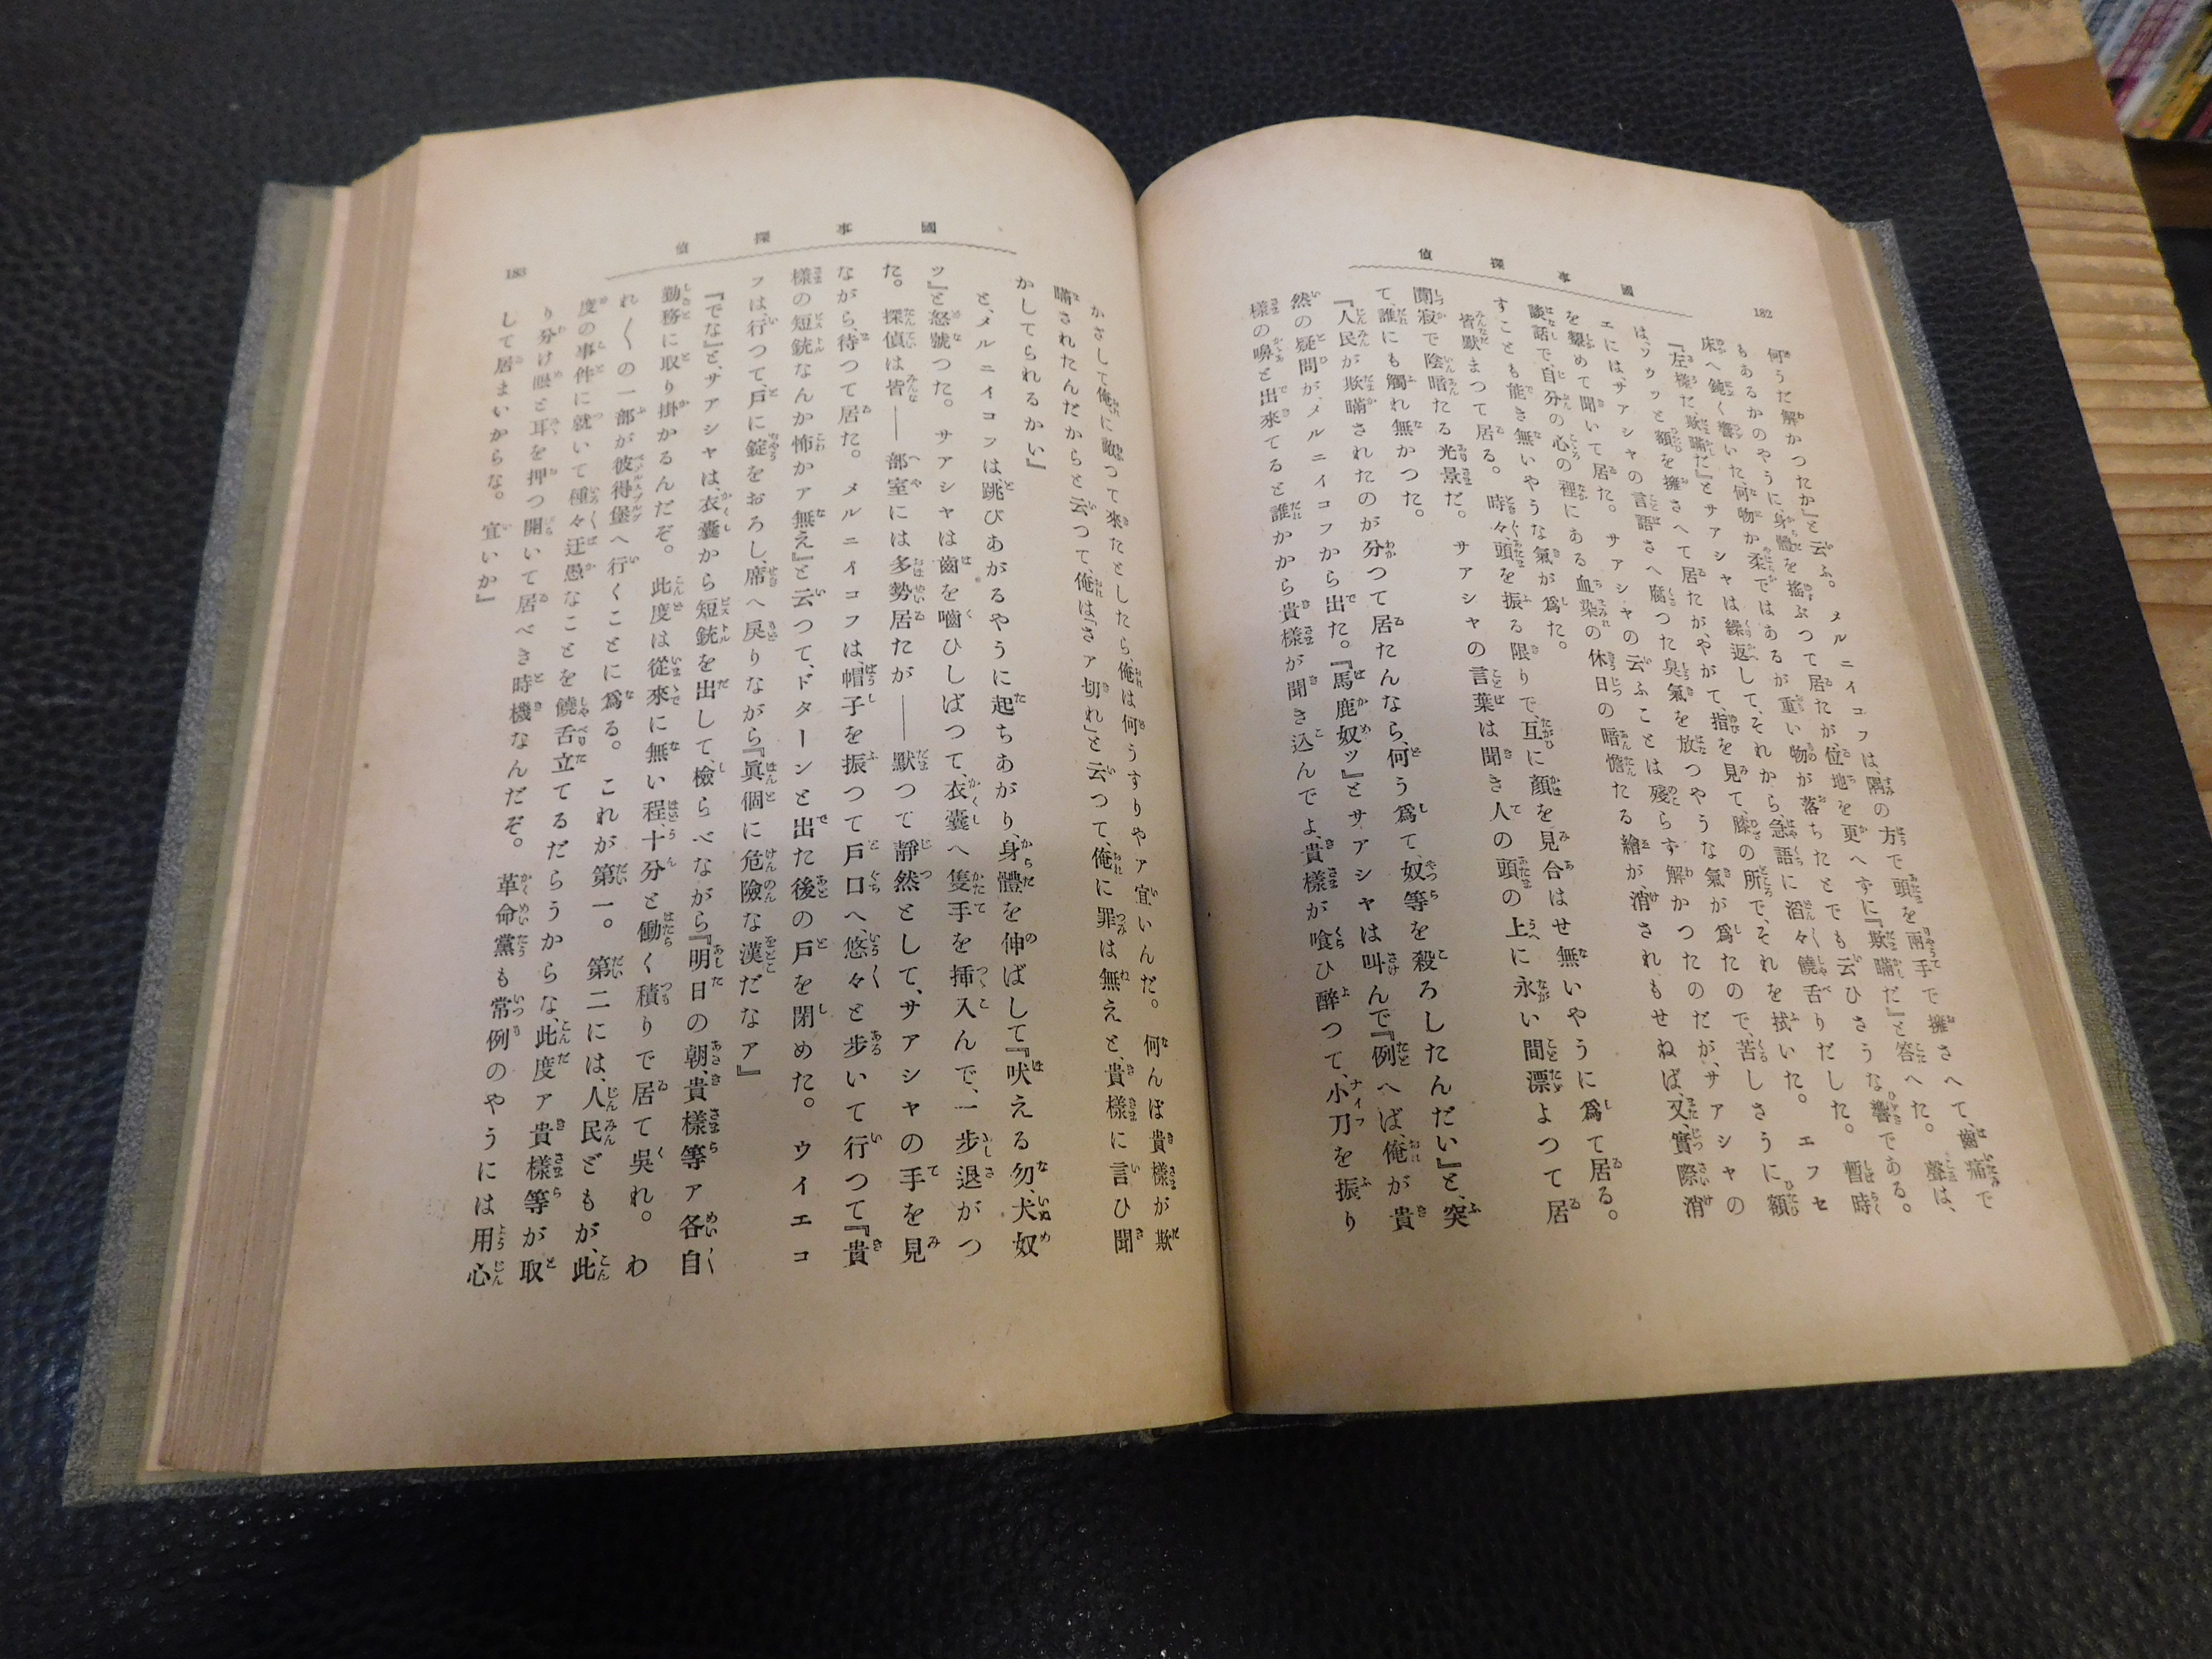 182
國事探偵
何うだ解かつたか』と云ふ。メルニイコフは、隅の方で頭を兩手で擁さへて、齒痛で
もあるかのやうに、身體を搖ぶつて居たが位地を更へずに『欺瞞だ』と答へた。聲は、
床へ鈍く響いた、何物か柔ではあるが重い物が落ちたとでも云ひさうな響である。
『左樣だ、欺瞞だ』とサアシャは繰返して、それから、急語に滔々饒舌りだした。暫時
は、ソウッと額を擁さへて居たが、やがて、指を見て、膝の所で、それを拭いた。エフセ
エにはサアシャの言語さへ腐つた臭氣を放つやうな氣が爲たので、苦しさうに額
を顰めて聞いて居た。サアシャの云ふことは殘らず解かつたのだが、サアシャの
談話で、自分の心の裡にある血染の休日の暗憺たる繪が、消されもせねば、又、實際消
すことも能き無いやうな氣が爲た。
皆默まつて居る。時々、頭を振る限りで、互に顏を見合はせ無いやうに爲て居る。
闃寂で陰暗たる光景だ。サアシャの言葉は聞き人の頭の上に永い間漂よつて居
て、誰にも觸れ無かつた。
『人民が欺瞞されたのが分つて居たんなら、何う爲て、奴等を殺ろしたんだい』と、突
然の疑問が、メルニイコフから出た。『馬鹿奴ッ』とサアシャは叫んで『例へば、俺が貴
樣の嚊と出來てると誰かから貴樣が聞き込んでよ、貴樣が喰ひ醉つて、小刀を振り
國事探偵
183
かざして俺に歐つて來たとしたら、俺は何うすりやァ宜いんだ。何んぼ貴樣が欺
瞞されたんだからと云つて、俺は「さァ切れ」と云つて、俺に罪は無えと、貴樣に言ひ聞
かしてられるかい』
と、メルニイコフは、跳びあがるやうに起ちあがり、身體を伸ばして『吠える勿、犬奴
ッ』と怒號つた。サアシャは齒を嚙ひしばつて、衣嚢へ隻手を挿入んで、一步退がつ
た。探偵は皆――部室には多勢居たが――默つて靜然として、サアシャの手を見
ながら、待つて居た。メルニイコフは、帽子を振つて戶口へ、悠々と步いて行つて『貴
樣の短銃なんか怖かァ無え』と云つて、ドターンと出た後の戶を閉めた。ウイエコ
フは、行つて、戶に錠をおろし、席へ戾りながら『眞個に危險な漢だなァ』
『でな』と、サアシャは、衣嚢から短銃を出して、檢らべながら『明日の朝、貴樣等ァ各自
勤務に取り掛かるんだぞ。此度は從來に無い程、十分と働く積りで居て吳れ。わ
れ〱の一部が彼得堡へ行くことに爲る。これが第一。第二には、人民どもが、此
度の事件に就いて種々迂愚なことを饒舌立てるだらうからな、此度ァ貴樣等が取
り分け眼と耳を押つ開いて居べき時機なんだぞ。革命黨も常例のやうには用心
して居まいからな。宜いか』